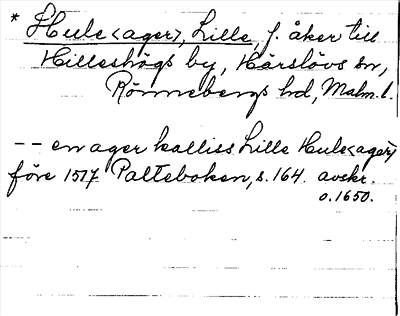 * Hule<ager>, Lille, f. åker till
Hilleshögs by, Härslövs sn,
Rönnebergs hd, Malm. l.
-- en ager kalliss Lille Hule<ager>
före 1517 Palteboken, s. 164. avskr.
o. 1650.